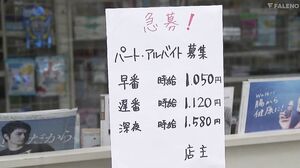 FALENO
急募！
パート・アルバイト募集
早番 時給 1.050円
遅番 時給 1.120円
深夜 時給 1.580円
店主
だカラ。
腸から
健康に！